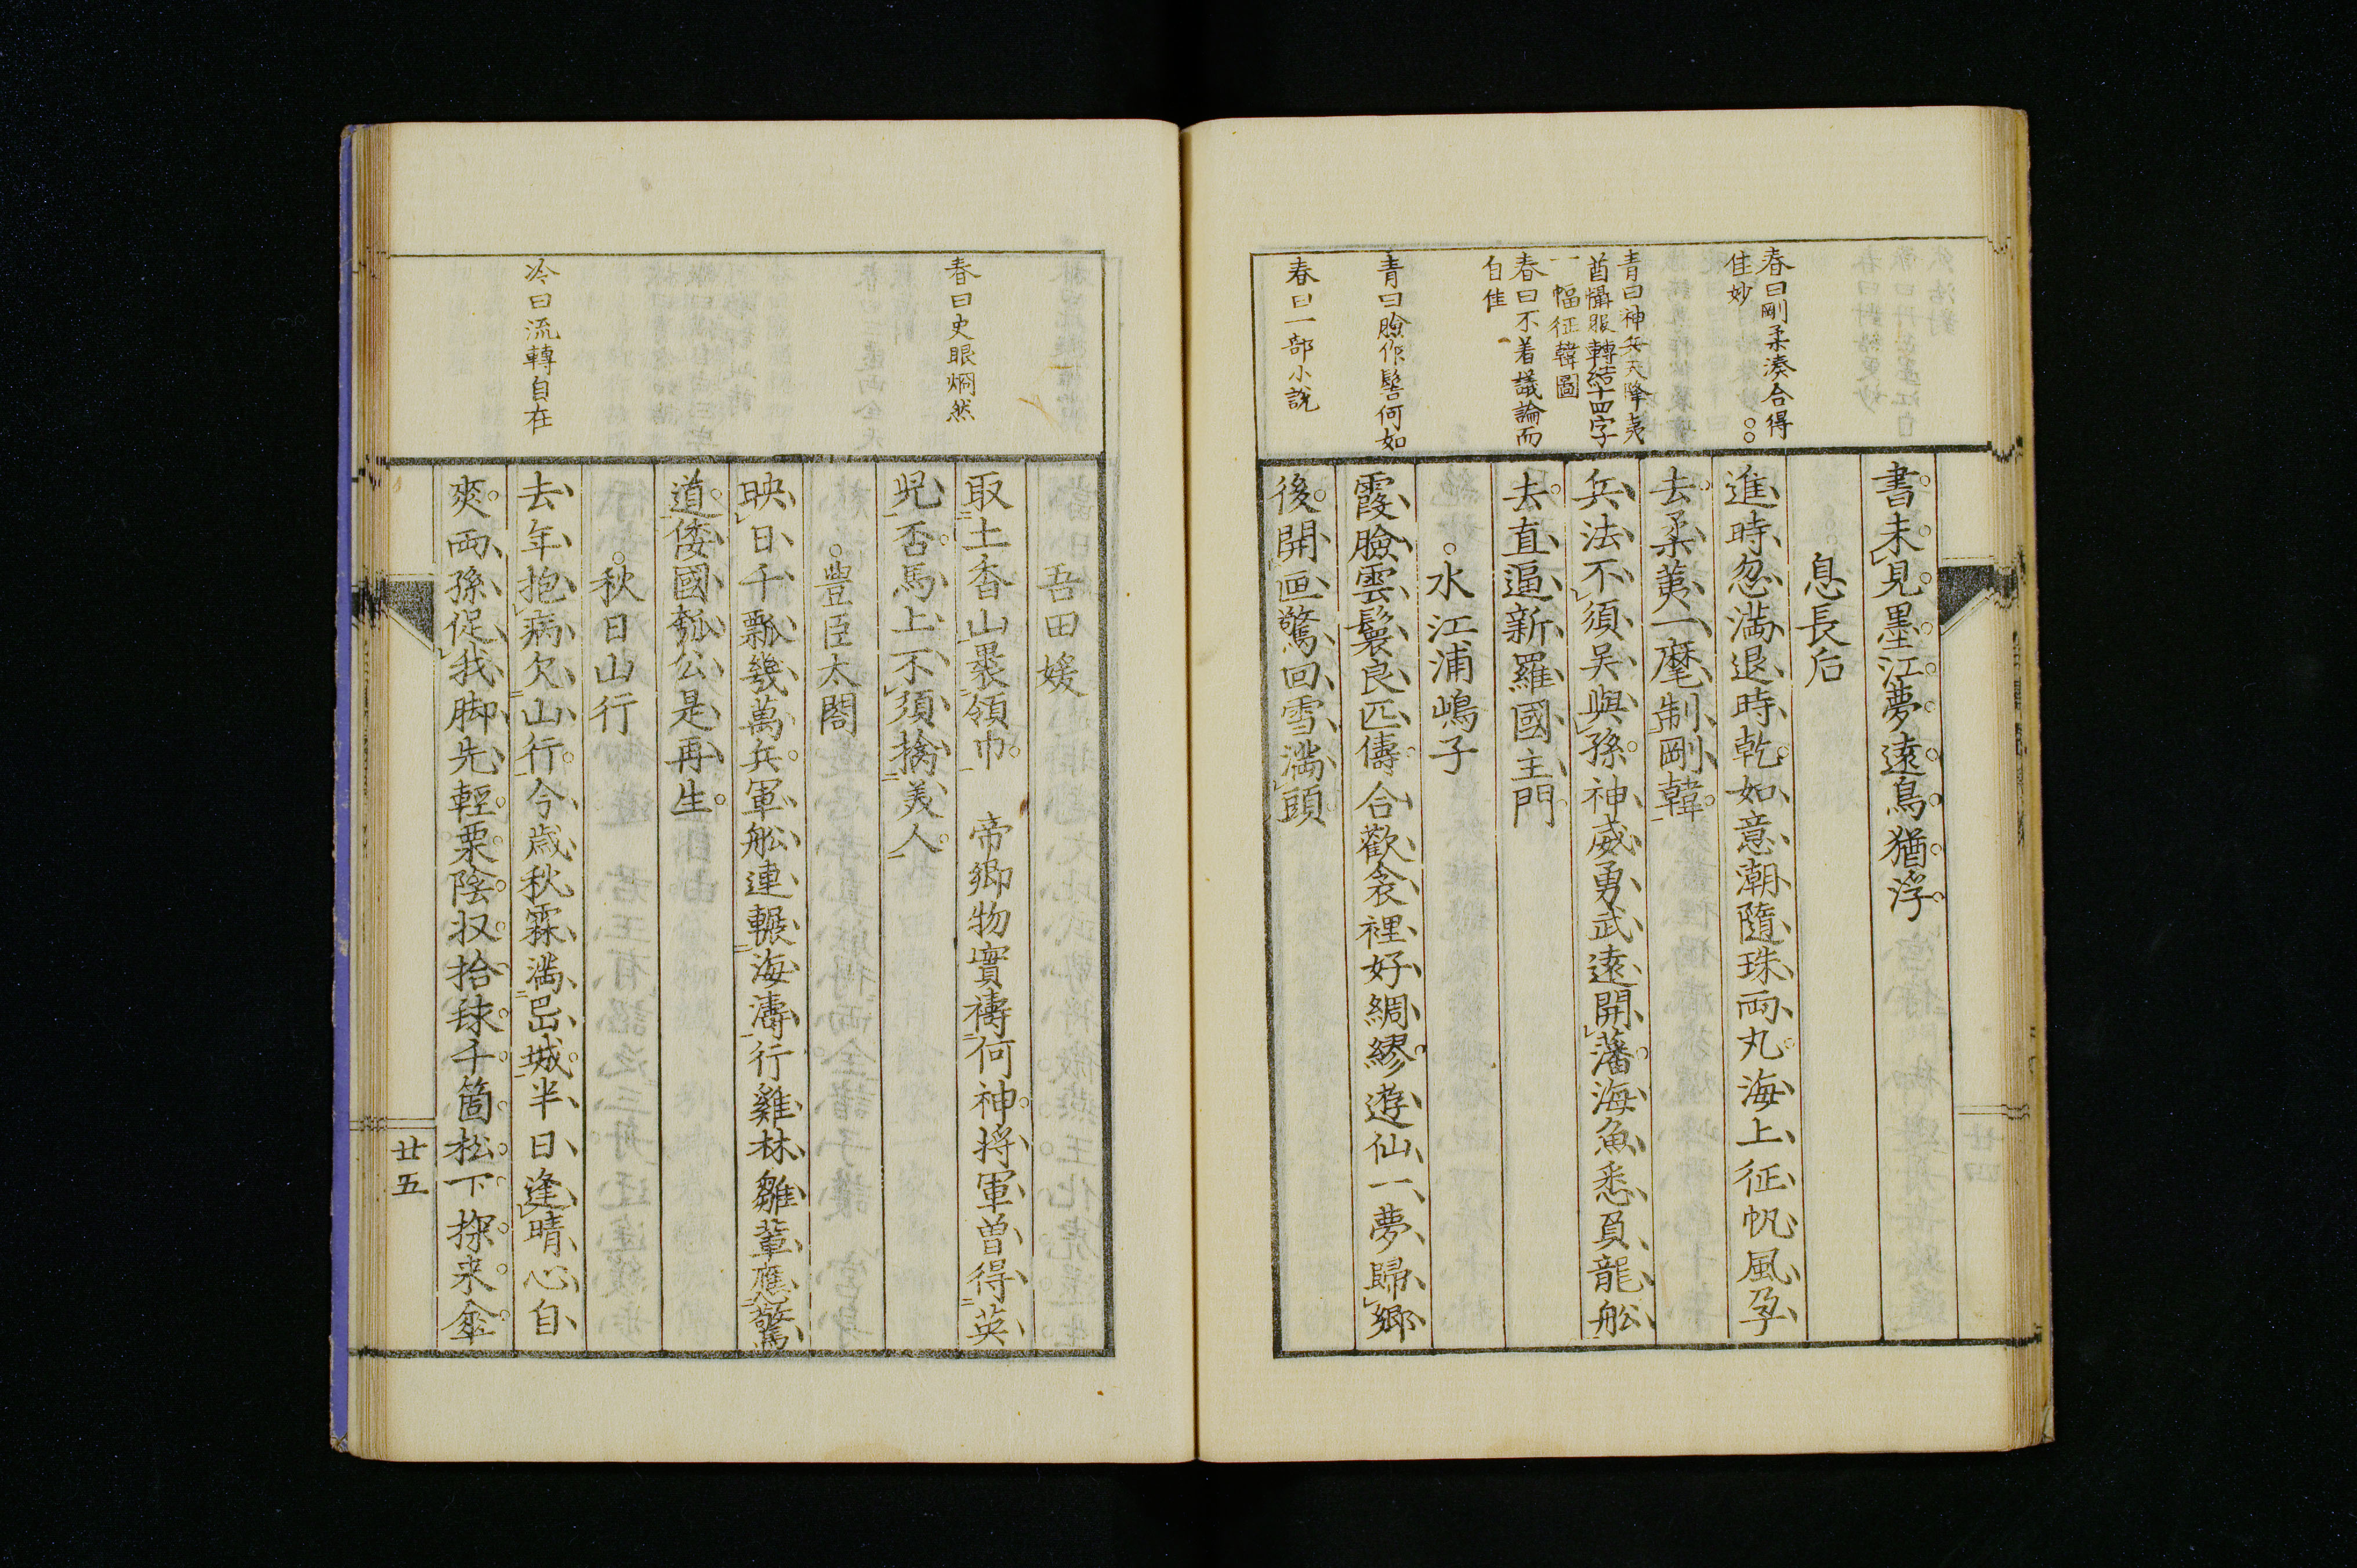 書未見墨江夢遠鳥猶浮
息長后
進時忽満退時乾如意潮隨珠両丸海上征帆風孕
去柔荑一麾制剛韓
兵法不須吴與孫神威勇武遠開藩海魚悉負龍舩
去直逼新羅國主門
水江浦嶋子
霞臉雲鬟良匹儔合歡衾裡好綢繆遊仙一夢歸郷
後開画驚回雪満頭
春曰剛柔湊合得
佳妙
青曰神兵天降夷
酋懾服轉結十四字
一幅征韓圖
春曰不着議論而
自佳
青曰臉作髻何如
春曰一部小説
吾田媛
取土香山裹領巾 帝郷物實禱何神将軍曽得英
児否馬上不須擒美人
豊臣太閤
映日千瓢幾萬兵軍舩連輾海濤行雞林雛輩應驚
道倭國瓠公是再生
秋日山行
去年抱病欠山行今歳秋霖満邑城半日逢晴心自
爽両孫促我脚先輕栗陰扠拾毬千箇松下探来傘
春曰史眼烱然
冷曰流轉自在
廿五